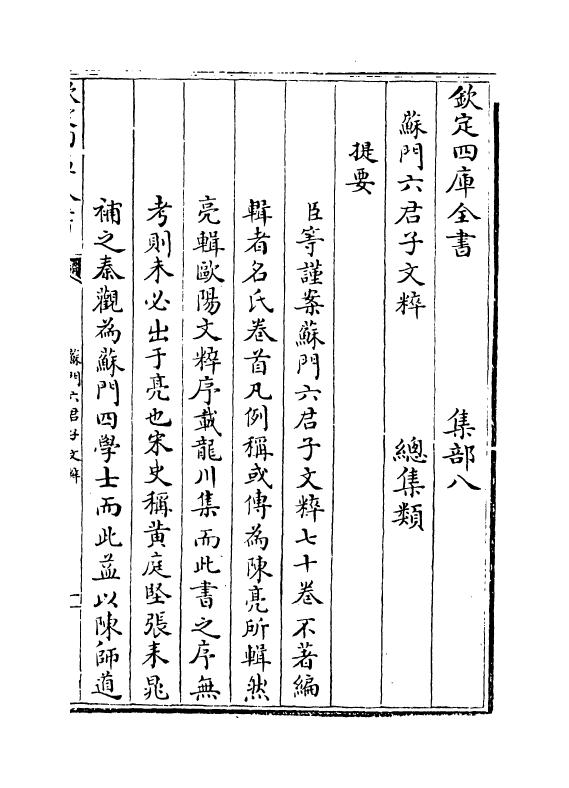 欽定四庫全書　　　　集部八
蘇門六君子文粹　　　　總集類
提要
臣等謹案蘇門六君子文粹七十卷不著編
輯者名氏卷首凡例稱或傳為陳亮所輯然
亮輯歐陽文粹序載龍川集而此書之序無
考則未必出于亮也宋史稱黄庭堅張耒晁
補之秦觀為蘇門四學士而此益以陳師道
蘇門六君子文粹